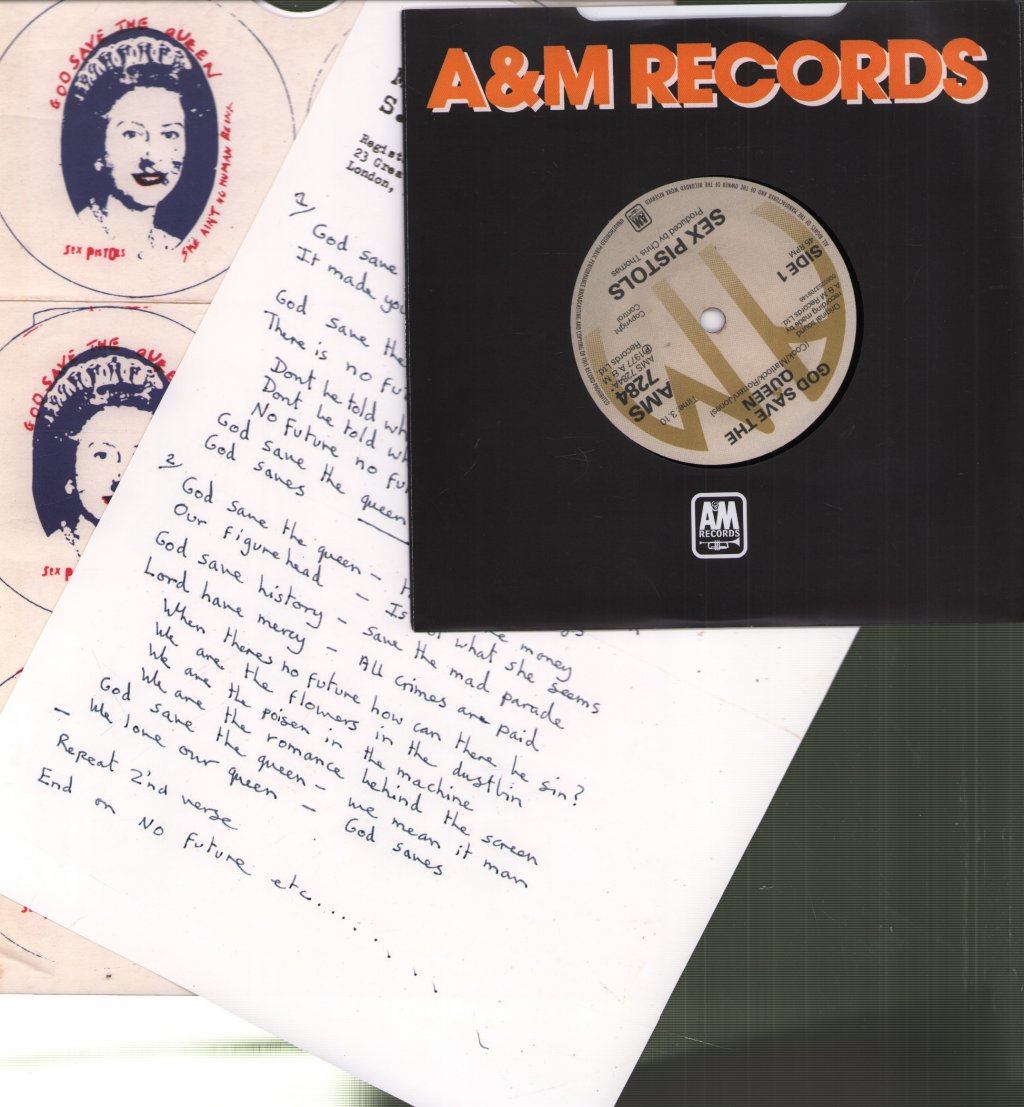 GOD SAVE THE QUEEN
SHE AIN'T NO HUMAN BEING
SEX PISTOLS
GOD SAVE THE QUEEN
SEX P
S
Regist
23 Grea
London,
1/
God save
It made you
God save the
There is no fut
Dont be told wh
Dont be told wh
No future no fu
God save the queen
God saves
2/
God save the queen –
Our figurehead – Is not what she seems
money
God save history – save the mad parade
Lord have mercy – All crimes are paid
When theres no future how can there be sin?
We are the flowers in the dustbin
We are the poison in the machine
We are the romance behind the screen
God save the queen – we mean it man
– We love our queen – God saves
Repeat 2'nd verse
End on No future etc......
A&M RECORDS
SEX PISTOLS
Produced by Chris Thomas
SIDE 1
45 RPM
Original sound
recording made by
A & M Records Ltd.
Copyright
Control
℗1977 A & M
Records Ltd.
AMS 7284A
AMS
7284
Time 3.10
(Cook/Matlock/Rotten/Jones)
GOD SAVE THE
QUEEN
A&M
RECORDS